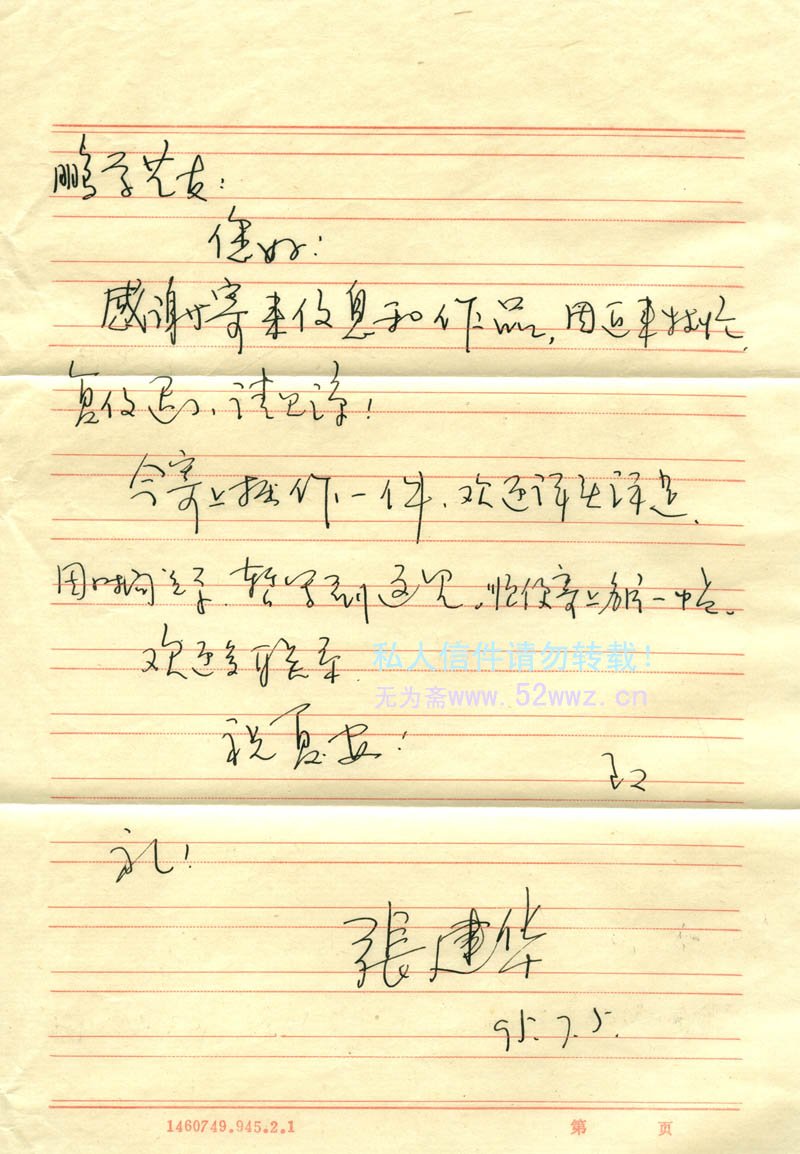 鹏学艺友：
您好：
感谢寄来信息和作品，因近来较忙，
复信迟了，请见谅！
今寄上拙作一件，欢迎评
因时间关系，暂写到这里。顺便寄上名片一帖。
欢迎多联系
私人信件请勿转载！
无为斋www.52wwz.cn
祝夏安！
致
礼！
張建华
95.7.5.
1460749.945.2.1 第 页